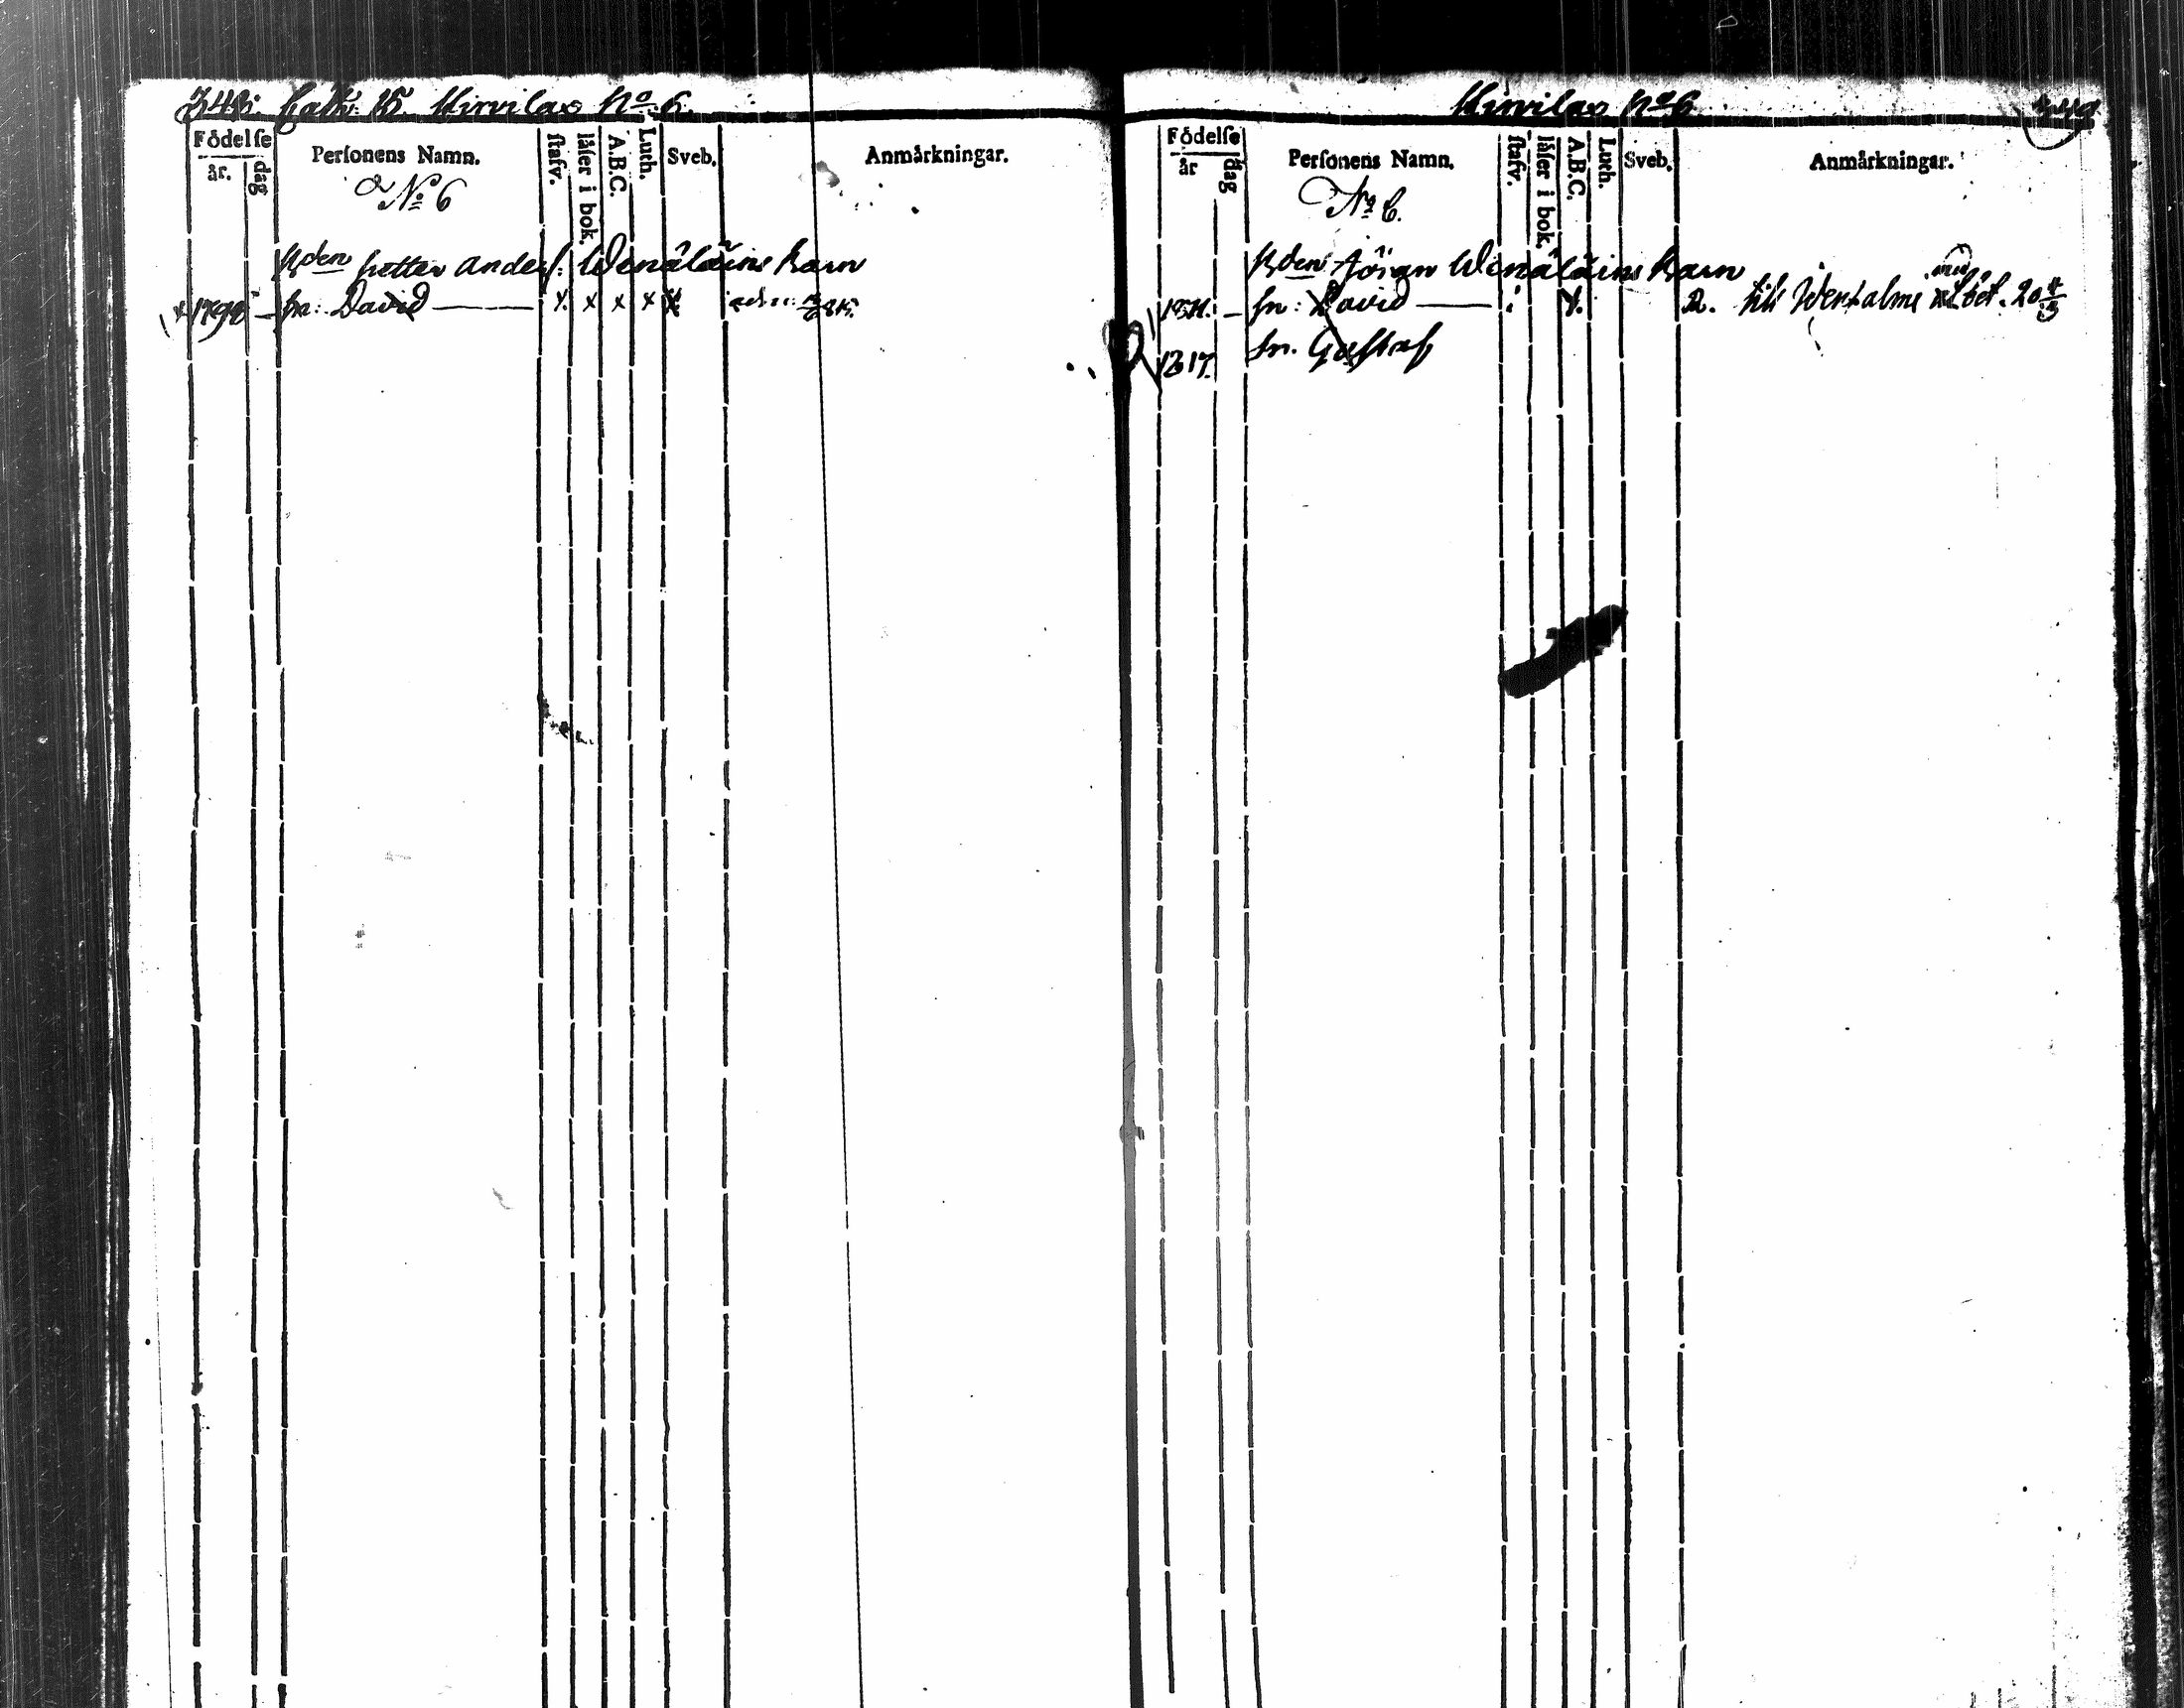 348. Cath: 15. Kirvilax No 6.
Födelſe
år. dag
Perſonens Namn.
ſtafv.
låſer i bok.
A.B.C.
Luth.
Sveb.
Anmärkningar.
No 6
Bden Petter Anderſ: Wenäläins Barn
x 1798 — ſn: David — x. x x x x
Kirvilax No 6.
349
Födelſe
år dag
Perſonens Namn.
ſtafv.
låſer i bok.
A.B.C.
Luth.
Sveb.
Anmärkningar.
No 6.
Bden Jöran Wenäläins Barn
1811. — ſn: David — till
1817. ſn. Guſtaf